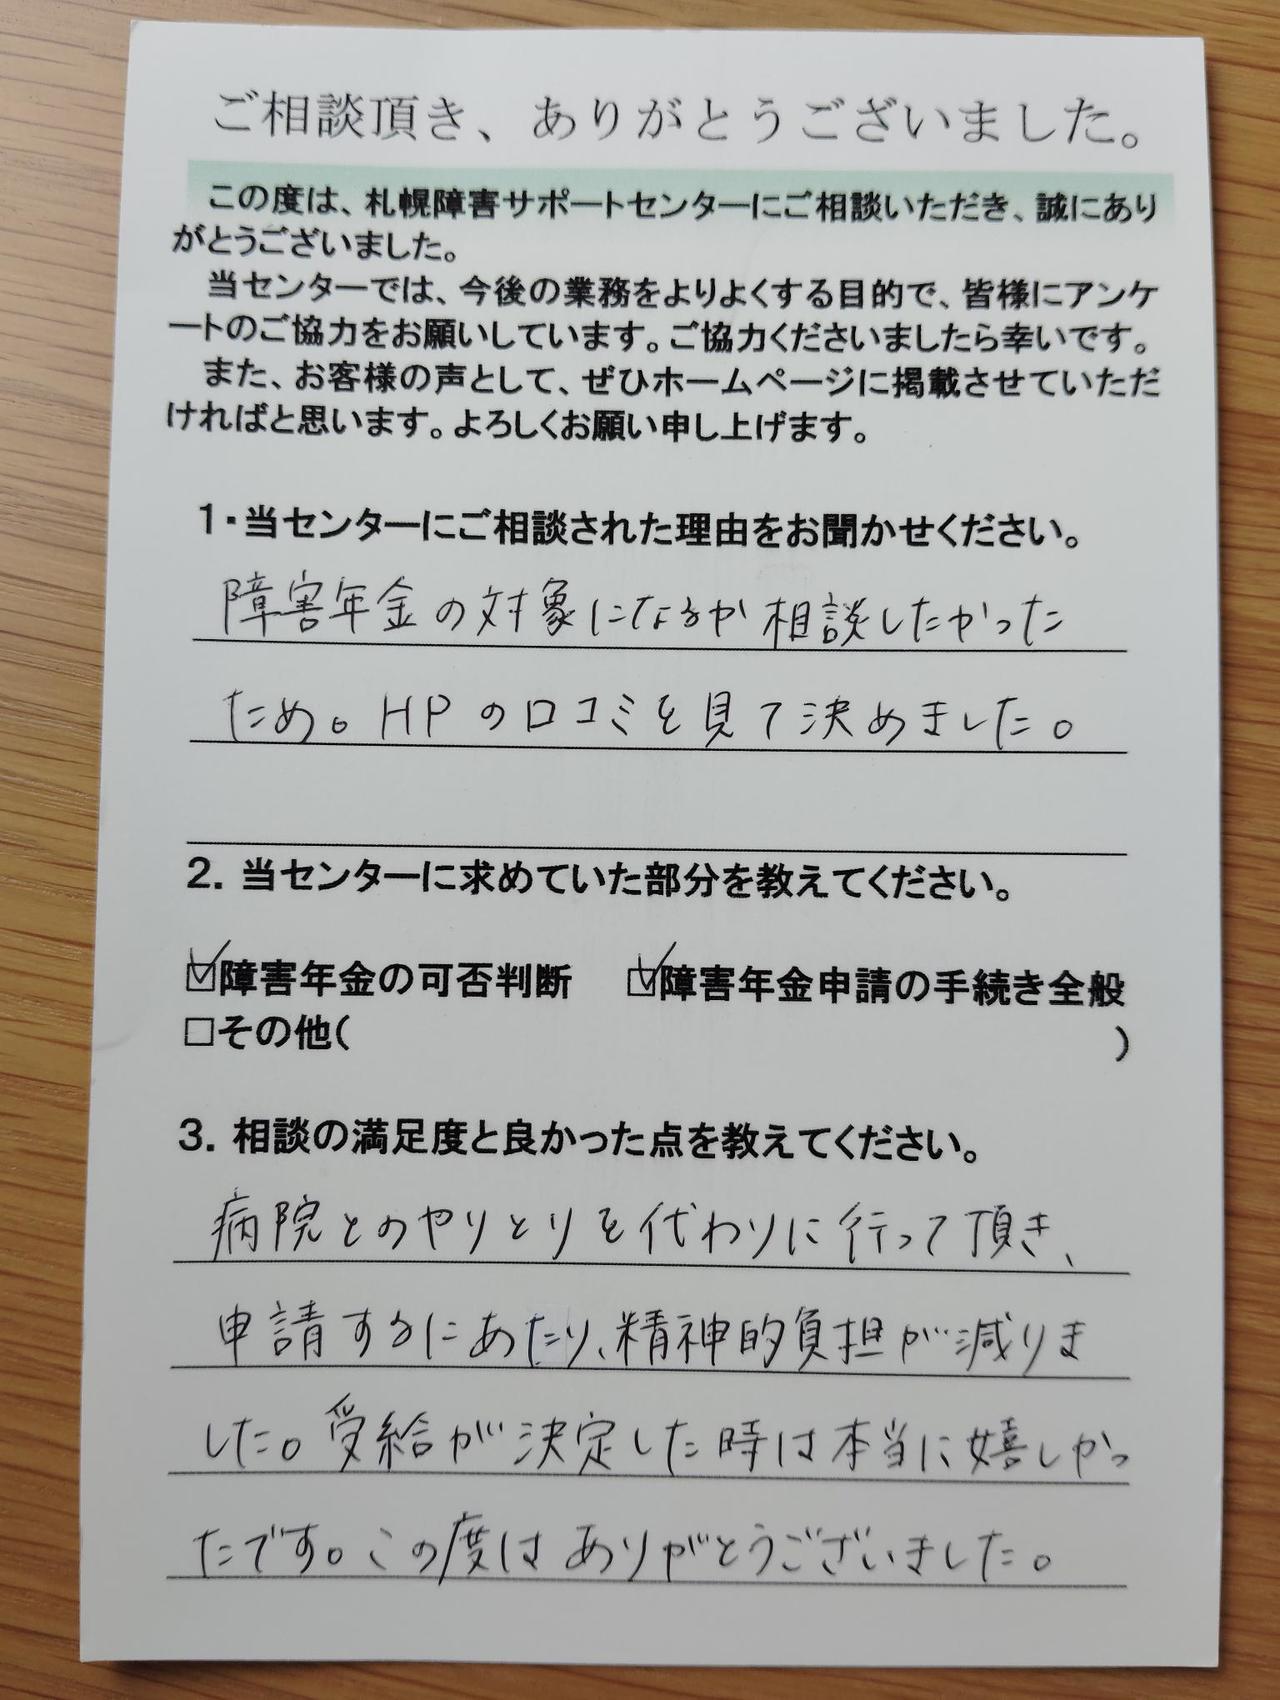 ご相談頂き、ありがとうございました。
この度は、札幌障害サポートセンターにご相談いただき、誠にあり
がとうございました。
当センターでは、今後の業務をよりよくする目的で、皆様にアンケ
ートのご協力をお願いしています。ご協力くださいましたら幸いです。
また、お客様の声として、ぜひホームページに掲載させていただ
ければと思います。よろしくお願い申し上げます。
1・当センターにご相談された理由をお聞かせください。
障害年金の対象になるか相談したかった
ため。HPの口コミを見て決めました。
2. 当センターに求めていた部分を教えてください。
☑障害年金の可否判断 ☑障害年金申請の手続き全般
□その他( )
3. 相談の満足度と良かった点を教えてください。
病院とのやりとりを代わりに行って頂き、
申請するにあたり、精神的負担が減りま
した。受給が決定した時は本当に嬉しかっ
たです。この度はありがとうございました。